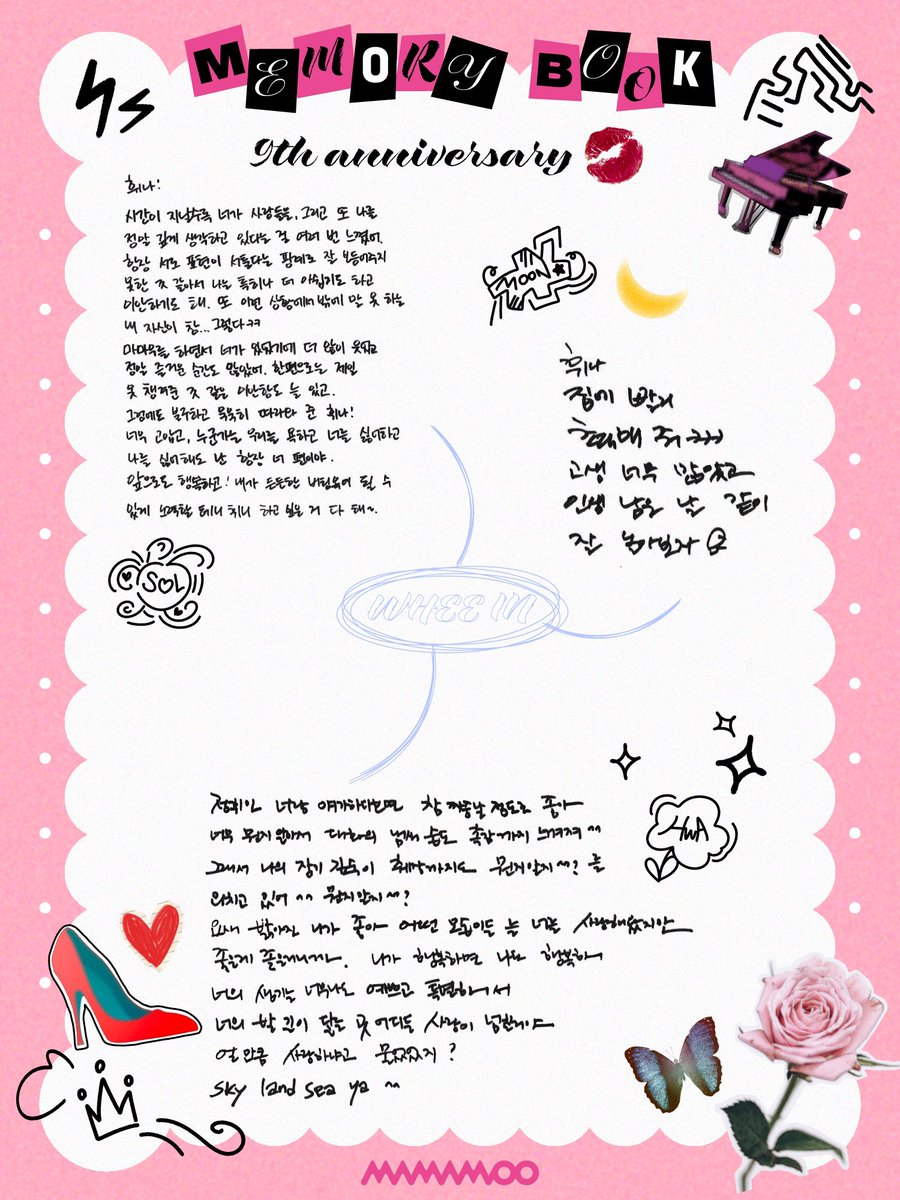 MEMORY BOOK
9th anniversary
휘나!
시간이 지날수록 너가 사람들을, 그리고 또 나를
정말 깊게 생각하고 있다는 걸 여러 번 느꼈어.
항상 서로 표현이 서툴다는 핑계로 잘 보듬어주지
못한 것 같아서 나는 특히나 더 아쉽기도 하고
미안하기도 해. 또 이런 상황에서밖에 말 못 하는
내 자신이 참... 그렇다ㅋㅋ
마마무를 하면서 너가 있었기에 더 많이 웃었고
정말 즐거운 순간도 많았어. 한편으로는 제일
못 챙겨준 것 같은 미안함도 늘 있고.
그럼에도 불구하고 묵묵히 따라와 준 휘나!
너무 고맙고, 누군가는 우리를 욕하고 너를 싫어하고
나를 싫어해도 난 항상 너 편이야.
앞으로도 행복하고! 내가 든든한 버팀목이 될 수
있게 노력할 테니 휘나 하고 싶은 거 다 해~.
SOL
MOON
휘나
짐이 많지
고생 너무 많았고
인생 남은 날 같이
잘 놀아보자
WHEE IN
정휘인 너랑 얘기하다보면 참 좋아
너무 뭔지 알아서 대화의
그래서 나의 뭔지알지~? 늘
외치고 있어 ^^ 뭔지알지~?
요새 밝아진 니가 좋아 어떤 모습이든 늘 너를 사랑해왔지만
니가 행복하면 나도 행복해
너의 너무나도 예쁘고
너의 닿는 곳 어디든 사랑이
얼만큼 사랑하냐고 물었었지?
sky land sea ya ~
HWA
MAMAMOO